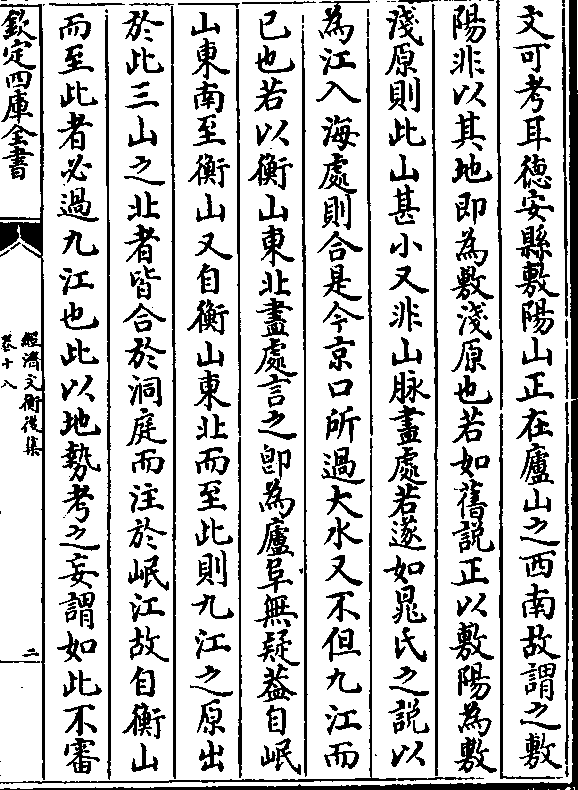 文可考耳德安縣敷陽山正在廬山之西南故謂之敷
陽非以其地即為敷淺原也若如舊說正以敷陽為敷
淺原則此山甚小又非山脉盡處若遂如晁氏之說以
為江入海處則合是今京口所過大水又不但九江而
已也若以衡山東北盡處言之即為廬阜無疑葢自岷
山東南至衡山又自衡山東北而至此則九江之原出
於此三山之北者皆合於洞庭而注於岷江故自衡山
而至此者必過九江也此以地勢考之妄謂如此不審
欽定四庫全書
經濟文衡後集
卷十八
二